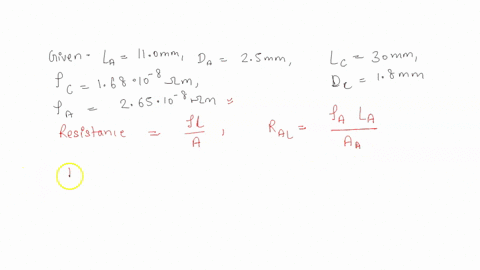 Given- L_A = 11.0mm, D_A = 2.5mm, L_C = 30mm,
ρ_C = 1.68·10⁻⁸ Ωm, D_C = 1.8mm
ρ_A = 2.65·10⁻⁸ Ωm
Resistance = ρl/A, R_AL = ρ_A L_A/A_A